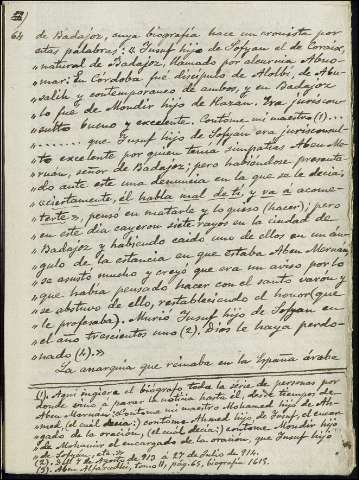 64
de Badajoz, cuya biografía hace un cronista por
estas palabras: « Yusuf hijo de Sofyan el de Coraix,
» natural de Badajoz, llamado por alcurnia Abuo-
» mar: En Córdoba fué discípulo de Alotbí, de Abu-
» salih y contemporaneo de ambos, y en Badajoz
» lo fue de Mondir hijo de Razan. Era juriscon-
» sulto bueno y excelente. Contome mi maestro (1)...
» ........ que Yusuf hijo de Sofyán era jurisconsul-
» to excelente por quien tenía simpatías Aben Me-
» ruan, señor de Badajoz; pero habiéndose presenta-
» do ante este una denuncia en la que se le decía:
» «ciertamente, él habla mal de tí, y vá á acome-
» terte», pensó en matarle y lo quiso (hacer); pero
» en este día cayeron siete rayos en la ciudad de
» Badajoz y habiendo caido uno de ellos en un án-
» gulo de la estancia en que estaba Aben Meruan,
» se asustó mucho y creyó que era un aviso por lo
» que había pensado hacer con el santo varón y
» se abstuvo de ello, restableciendo el honor (que
» le profesaba). Murió Yusuf hijo de Sofyan en
» el año trescientos uno (2). Dios le haya perdo-
» nado (3).»
La anarquía que reinaba en la España árabe
(1). Aquí ingiere el biógrafo toda la série de personas por
donde vino á parar la noticia hasta él, desde tiempos de
Aben Meruán: «Contome mi maestro Mohamed hijo de Ah-
» med, (el cual decía:) contome Ahmed hijo de Yusuf, el encar-
gado de la oración, (el cual decía:) contome Mondir hijo
» de Mohamir el encargado de la oración, que Yusuf hijo
» de Sofyan, etc.»
(2). Del 7 de Agosto de 913 á 27 de Julio de 914.
(3). Aben Alfaradhi, tomo II, pág. 65, biografía 1615.